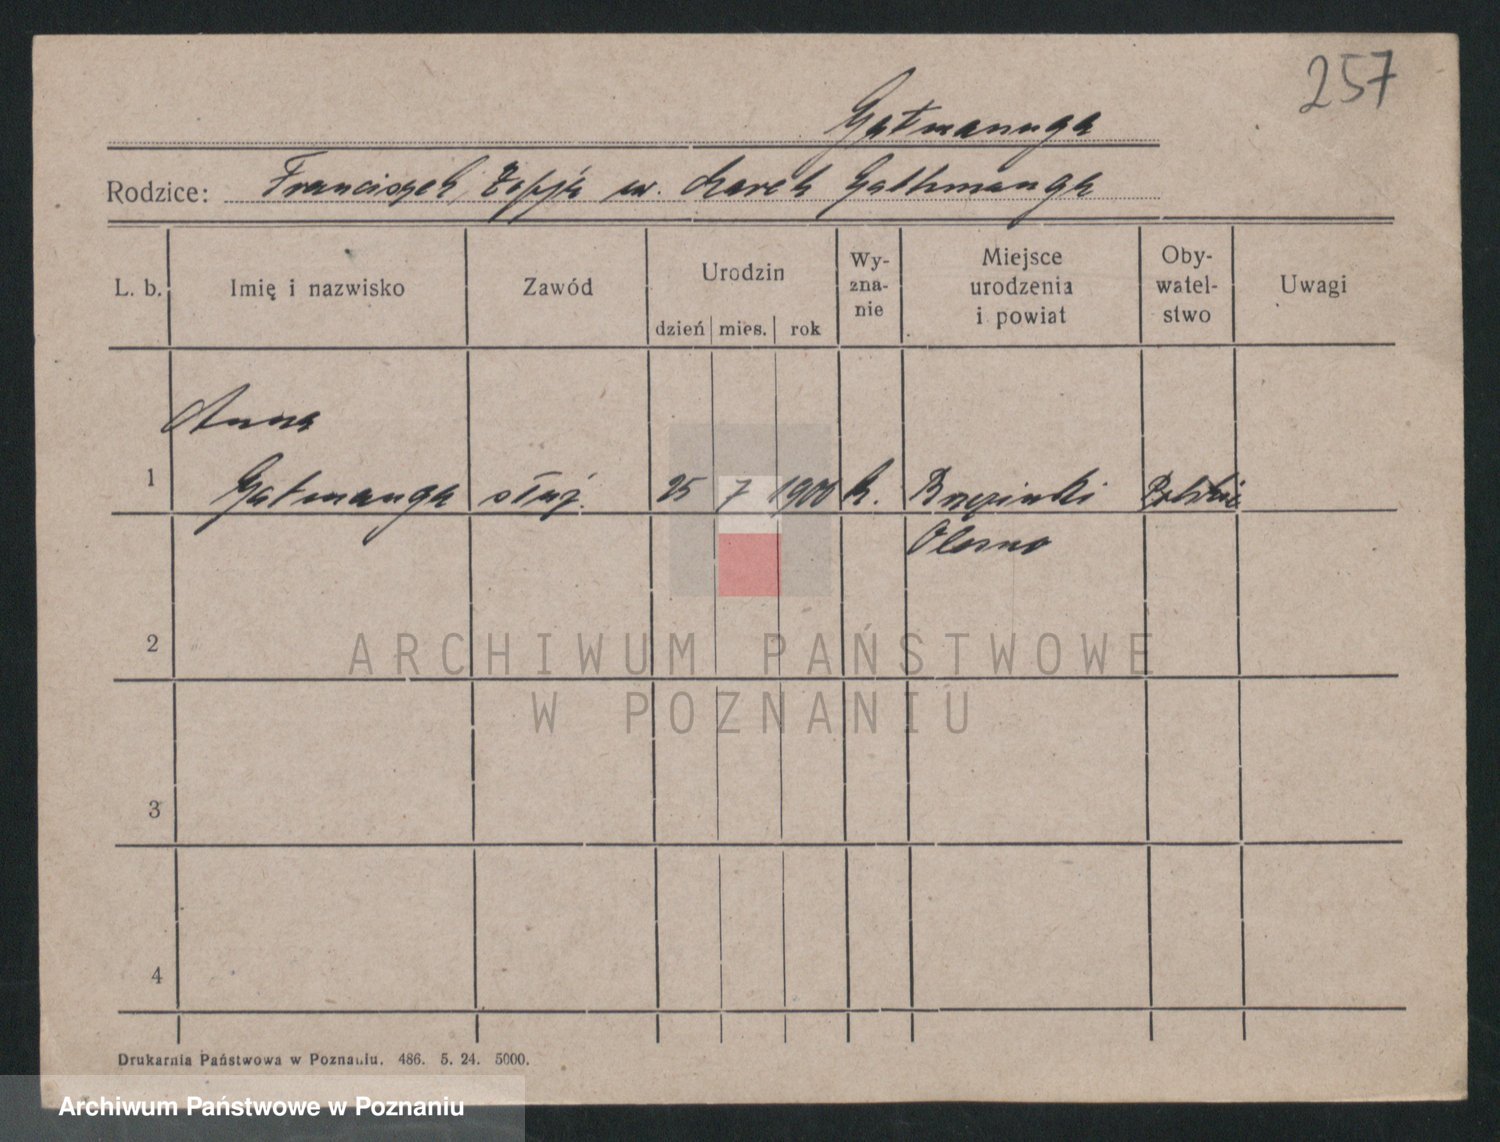 257
Gatmanuga
Rodzice: Franciszek, Zofja ur. Marek Gathmanga
L. b. Imię i nazwisko Zawód Urodzin dzień mies. rok Wy-zna-nie Miejsce urodzenia i powiat Oby-watel-stwo Uwagi
Anna
1 Gatmanga służ. 25 7 1900 k. Polskie
Olesno
2
ARCHIWUM PAŃSTWOWE
W POZNANIU
3
4
Drukarnia Państwowa w Poznaniu. 486. 5. 24. 5000.
Archiwum Państwowe w Poznaniu